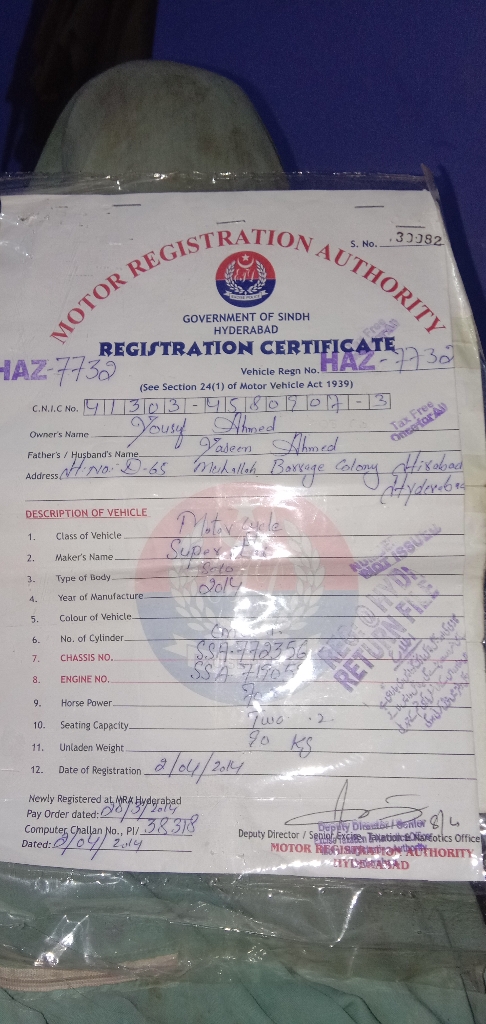 S. No. 30082
MOTOR REGISTRATION AUTHORITY
GOVERNMENT OF SINDH
HYDERABAD
REGISTRATION CERTIFICATE
HAZ-7732
Vehicle Regn No. HAZ-7732
(See Section 24(1) of Motor Vehicle Act 1939)
C.N.I.C No. 41303-4580907-3
Tax Free
Owner's Name Yousuf Ahmed
Father's / Husband's Name Yaseen Ahmed
Address H.No: D-65 Mohallah Barrage Colony Hirabad
Hyderabad
DESCRIPTION OF VEHICLE
1. Class of Vehicle Motor Cycle
2. Maker's Name Super
3. Type of Body Solo
4. Year of Manufacture 2014
5. Colour of Vehicle
6. No. of Cylinder
7. CHASSIS NO. SSA-772356
8. ENGINE NO. SSA
9. Horse Power 70
10. Seating Capacity Two 2
11. Unladen Weight 90 KG
12. Date of Registration 2/04/2014
RETURN FILE
Newly Registered at MRA Hyderabad
Pay Order dated: 28/3/2014
Computer Challan No., PI/ 38318
Dated: 2/04/2014
8/4
Deputy Director / Senior Excise, Taxation & Narcotics Office
MOTOR REGISTRATION AUTHORITY
HYDERABAD